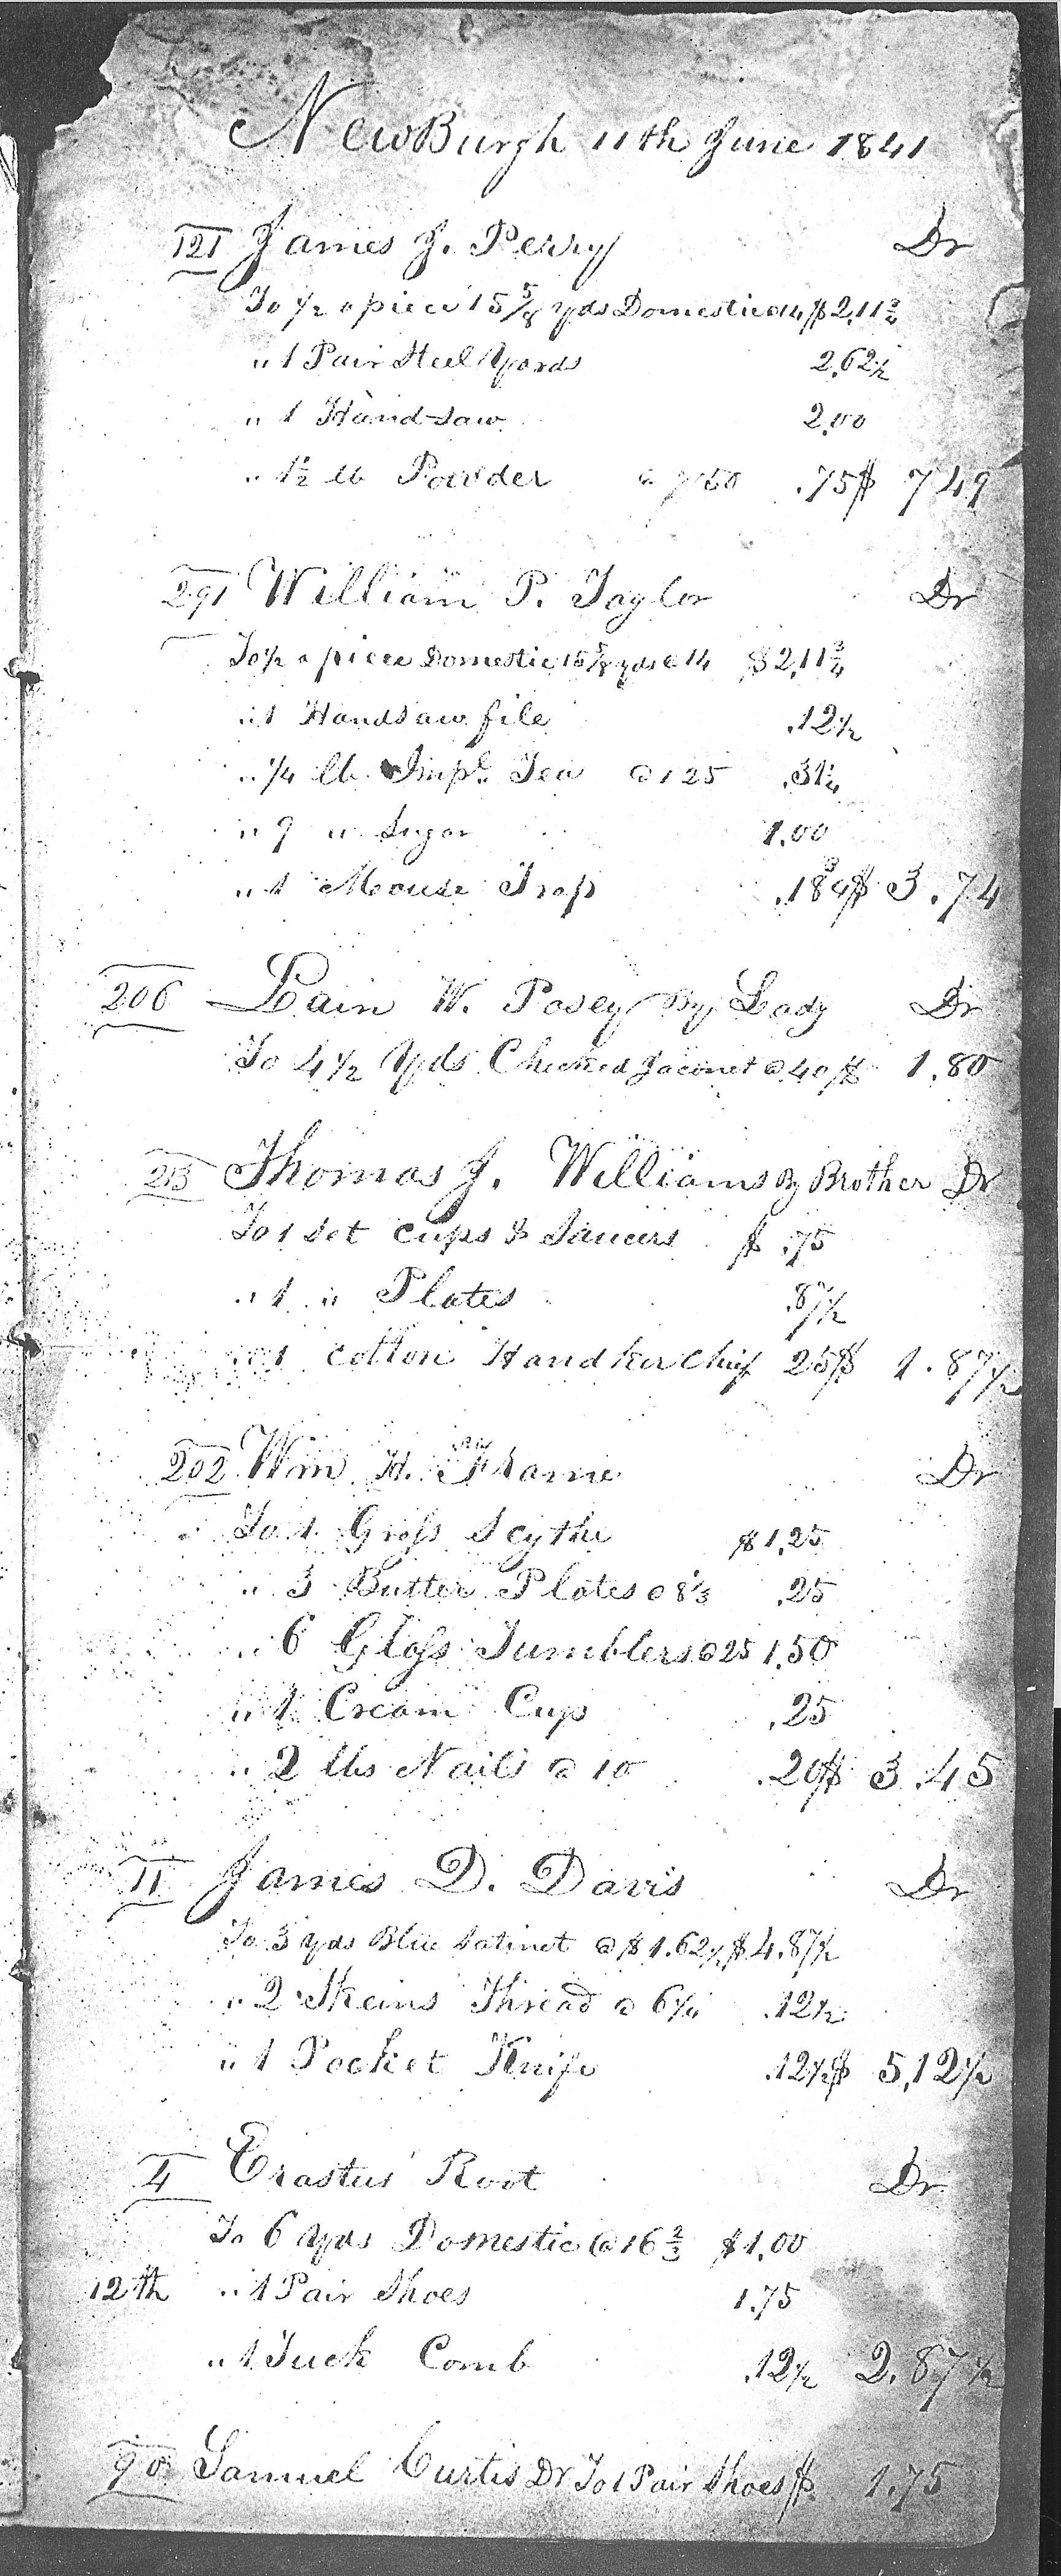 NewBurgh 11th June 1841
121 James J. Perry Dr
To ½ a piece 15 5/8 yds Domestic @ 14 $ 2,11 3/4
" 1 Pair Steel Yards 2,62½
" 1 Handsaw 2,00
" 1½ lb Powder @ 50 .75 $ 7 49
291 William P. Taylor Dr
To ½ a piece Domestic 15 5/8 yds @ 14 $ 2,11 3/4
" 1 Handsaw file .12½
" ¼ lb Impl Tea @ 1 25 .31¼
" 9 " Sugar 1.00
" 1 Mouse Trap .18 3/4 $ 3.74
206 Lain W. Posey By Lady Dr
To 4½ Yds Checked Jaconet @ 40 $ 1.80
213 Thomas J. Williams By Brother Dr
To 1 set cups & Saucers $ .75
" 1 " Plates .87½
" 1 cotton Handkerchief 25 $ 1.87½
202 Wm H. Frame Dr
To 1 Grass Scythe $ 1,25
" 3 Butter Plates @ 8⅓ .25
" 6 Glass Tumblers @ 25 1.50
" 1 Cream Cup .25
" 2 lbs Nails @ 10 .20 $ 3.45
11 James D. Davis Dr
To 3 yds Blue Satinet @ $ 1.62½ $ 4.87½
" 2 Skeins Thread @ 6¼ .12½
" 1 Pocket Knife .12½ $ 5,12½
4 Erastus Root Dr
To 6 Yds Domestic @ 16 2/3 $ 1.00
12th " 1 Pair Shoes 1.75
" 1 Tuck Comb .12½ 2.87½
90 Samuel Curtis Dr To 1 Pair Shoes $ 1.75